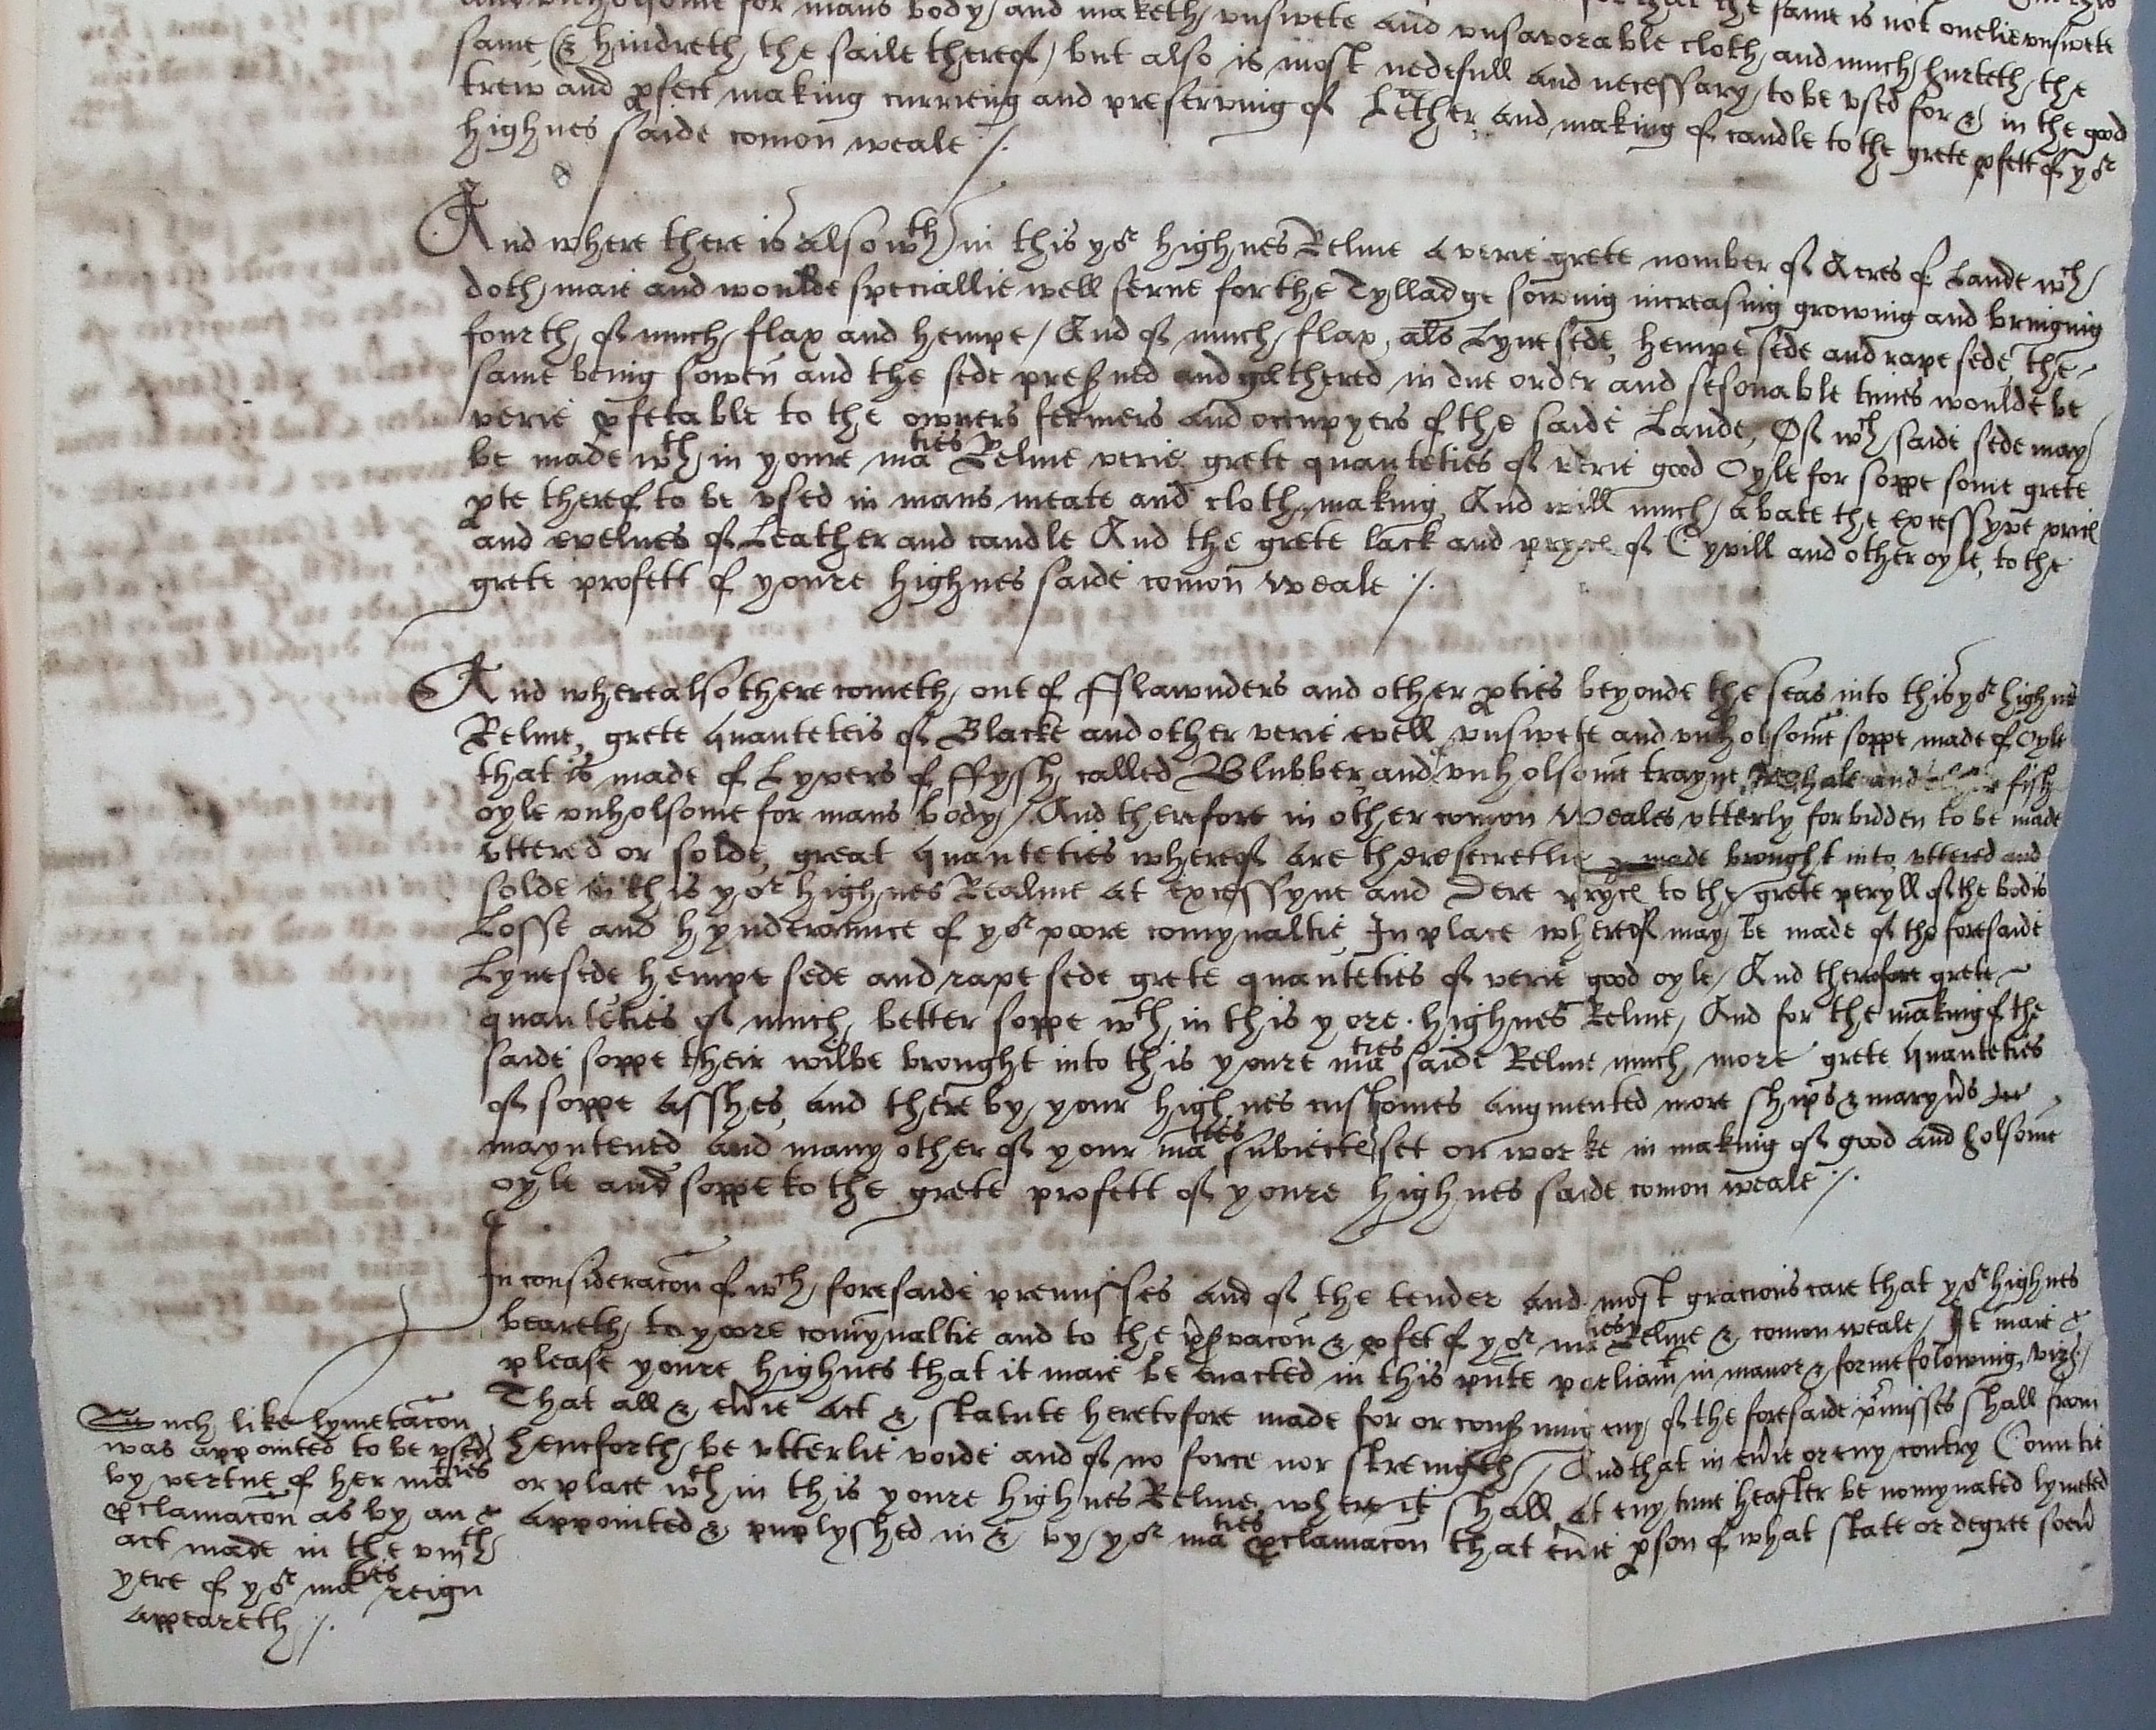 and vnholsome for mans body / and maketh vnswete and vnsavorable cloth and much hurteth the same is not onelie vnswete
same (& hindreth the saile therof) but also is most nedefull and necessary to be vsed for & in the good
trew and pfect making currieng and preserving of Lether and making of candle to the grete pfett of yor
highnes saide comon weale ./.
And where there is also wth in this yor highnes Relme a verie grete nomber of Acres of Lande wch
doth maie and woulde speciallie well serue for the Tylladge sowing increasing growing and bringing
fourth of much flax and hempe / And of much flax, als Lynesede, hempe sede and rape sede the
same being sowen and the sede preserued and gathered in due order and sesonable times woulde be
verie pfetable to the owners fermers and occupyers of the saide Lande, Of wch saide sede may
be made wth in youre maties Relme verie grete quanteties of verie good Oyle for soppe some grete
pte therof to be vsed in mans meate and cloth making, And will much abate the excessyve price
and evelnes of Leather and candle And the grete lack and pryce of Cyvill and other oyle, to the
grete profett of youre highnes saide comon weale ./.
And where also there cometh out of fflawnders and other pties beyonde the seas into this yor highnes
Relme, grete quanteteis of Blacke and other verie evell vnswete and vnholsome soppe made of Oyle
that is made of Lyvers of ffysh called Blubber, and vnholsome trayne whale and fish
oyle vnholsome for mans body / And therfore in other comon Weales vtterly forbidden to be made
vttered or solde, great quanteties wherof are there secretlie made brought into vttered and
solde in this yor highnes Realme at excessyue and Dere pryce to the grete peryll of the bodis
Losse and hynderaunce of yor poore comynaltie In place wherof may be made of the foresaide
Lynesede hempe sede and rape sede grete quanteties of verie good oyle / And therefore grete
quanteties of much better soppe wth in this yore highnes Relme, And for the making of the
saide soppe their wilbe brought into this youre maties saide Relme much more grete quanteties
of soppe asshes, and thereby your highnes customes augmented more ships & maryns
mayntened and many other of your maties subiectes set on worke in making of good and holsome
oyle and soppe to the grete profett of youre highnes saide comon weale ./.
In consideracon of wch foresaide premisses and of the tender and most gracious care that yor highnes
beareth to poore comynaltie and to the pservacon & pfet of yor maties Relme & comon weale / It maie
please youre highnes that it maie be enacted in this pnte parliamt in maner & forme folowing, viz.
That all & euie act & statute heretofore made for or conserning eny of the foresaide pmisses shall from
hencforth be vtterlie voide and of no force nor strength / And that in euie or eny contry Countie
or place wth in this youre highnes Relme where it shall at eny time heafter be nomynated lymeted
appointed & puplyshed in & by yor maties pclamacon that euie pson of what state or degree soeu
Such like lymetacon
was appointed to be vsed
by vertue of her maties
pclamacon as by an
act made in the viijth
yere of yor maties reign
appeareth ./.